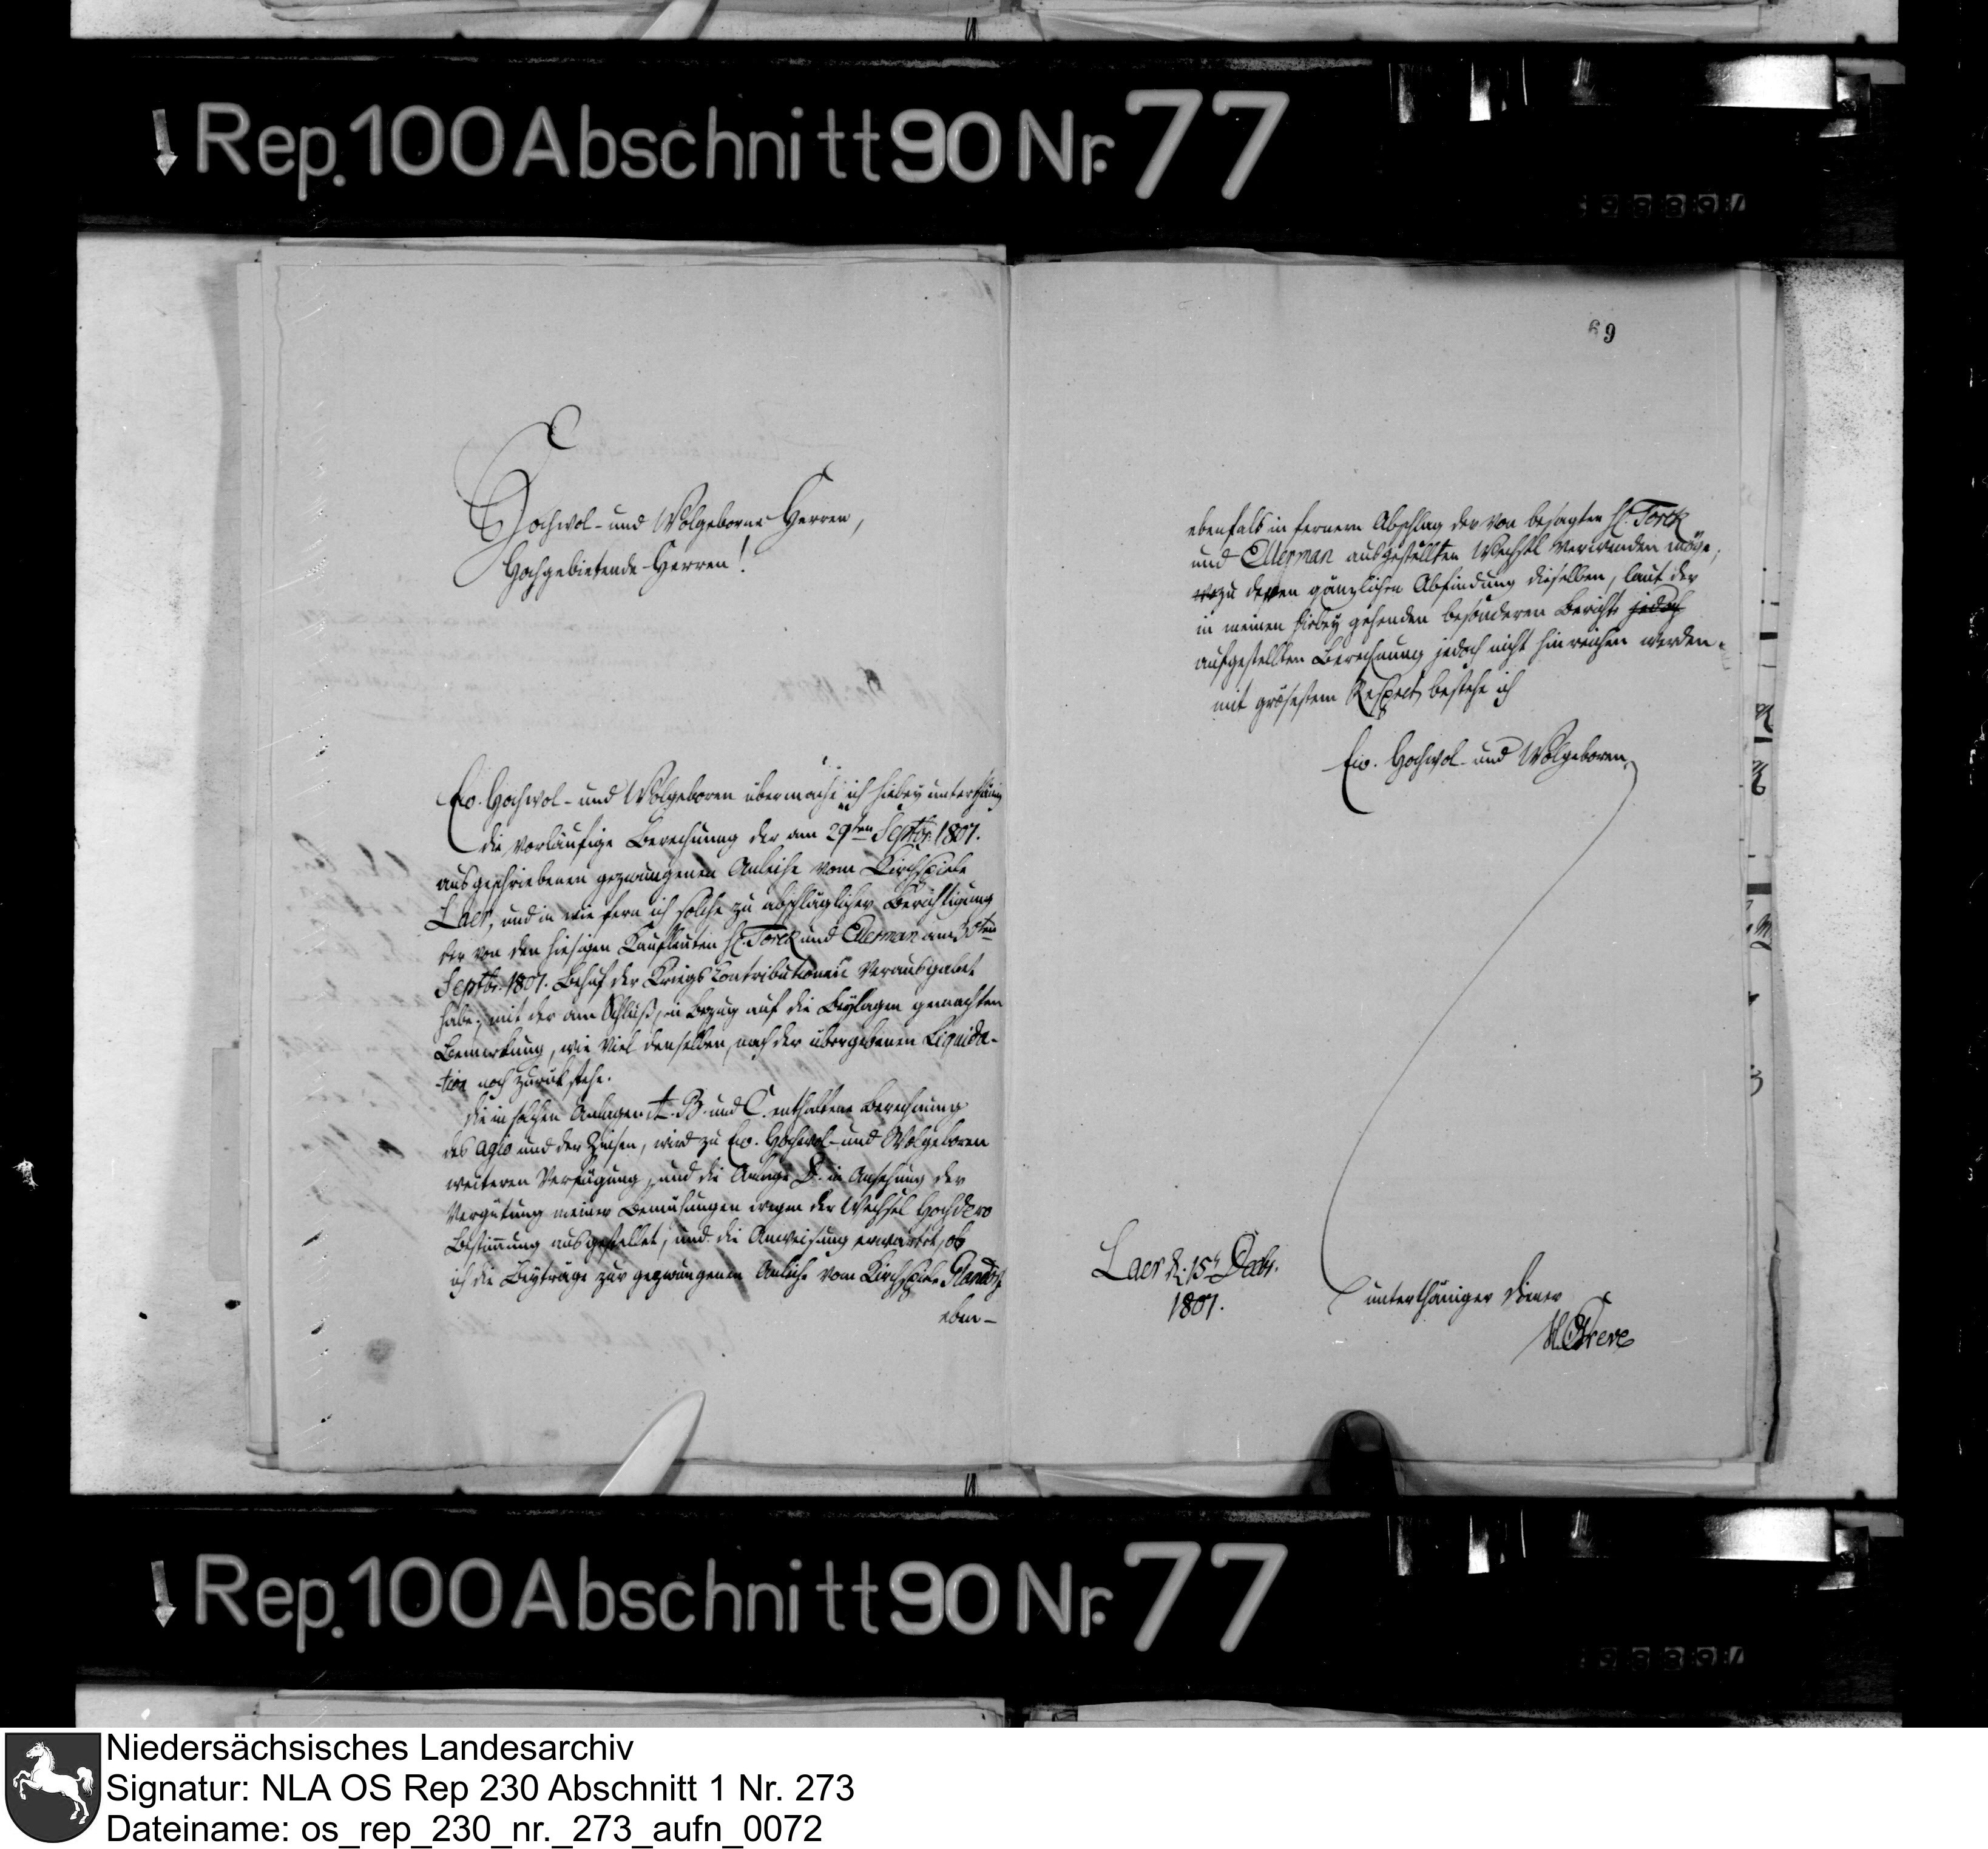 Rep. 100 Abschnitt 90 Nr. 77
69
Hochwol- und Wolgeborne Herren,
Hochgebietende Herren!
Ew. Hochwol- und Wolgeboren übermache ich hiebey unterthänig
die vorläufige Berechnung der am 29ten Septbr. 1807.
ausgeschriebenen gezwungenen Anleihe vom Kirchspiele
Laer, und in wie fern ich solche zu abschläglicher Berichtigung
der von den hiesigen Kaufleuten H. Torck und Ellerman am 30ten
Septbr. 1807. Behuf der Kriegs Contributionen verausgabet
habe; mit der am Schluß, in Bezug auf die Beylagen gemachten
Bemerkung, wie viel denselben, nach der übergebenen Liquida-
-tion noch zurük stehe.
Die in solchen Anlagen A. B. und C. enthaltene Berechnung
des Agio und der Zinsen, wird zu Ew. Hochwol- und Wolgeboren
weiteren Verfügung, und die Anlage D. in Ansehung der
Vergütung meiner Bemühungen wegen der Wechsel Hochdero
Bestimmung ausgestellet, und die Anweisung erwartet, ob
ich die Beyträge zur gezwungenen Anleihe vom Kirchspiele Glandorf
eben-
ebenfals in fernern Abschlag der von besagten H. Torck
und Ellerman ausgestellten Wechsel verwenden möge,
wozu deren gänzlichen Abfindung dieselben, laut der
in meinen hiebey gehenden besonderen Bericht jedoch
aufgestellten Berechnung jedoch nicht hinreichen werden.
mit grösestem Respect bestehe ich
Ew. Hochwol- und Wolgeboren
Laer d. 15t Decbr.
1807.
unterthäniger Diener
Greve
Rep. 100 Abschnitt 90 Nr. 77
Niedersächsisches Landesarchiv
Signatur: NLA OS Rep 230 Abschnitt 1 Nr. 273
Dateiname: os_rep_230_nr._273_aufn_0072